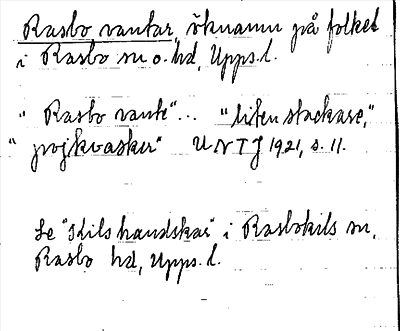 Rasbo vantar, öknamn på folket
i Rasbo sn o. hd, Upps. l.
"Rasbo vante"... "liten stackare,"
"pojkvasker" UNT J 1921, s. 11.
Se "Kils handskar" i Rasbokils sn,
Rasbo hd, Upps. l.